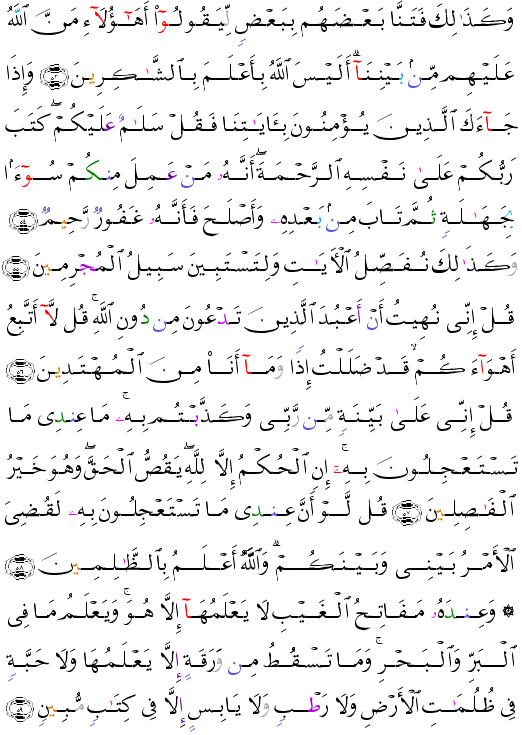 وَكَذَٰلِكَ فَتَنَّا بَعْضَهُم بِبَعْضٍ لِّيَقُولُوٓا۟ أَهَـٰٓؤُلَآءِ مَنَّ ٱللَّهُ
عَلَيْهِم مِّنۢ بَيْنِنَآ ۗ أَلَيْسَ ٱللَّهُ بِأَعْلَمَ بِٱلشَّـٰكِرِينَ ﴿٥٣﴾ وَإِذَا
جَآءَكَ ٱلَّذِينَ يُؤْمِنُونَ بِـَٔايَـٰتِنَا فَقُلْ سَلَـٰمٌ عَلَيْكُمْ ۖ كَتَبَ
رَبُّكُمْ عَلَىٰ نَفْسِهِ ٱلرَّحْمَةَ ۖ أَنَّهُۥ مَنْ عَمِلَ مِنكُمْ سُوٓءًۢا
بِجَهَـٰلَةٍ ثُمَّ تَابَ مِنۢ بَعْدِهِۦ وَأَصْلَحَ فَأَنَّهُۥ غَفُورٌ رَّحِيمٌ ﴿٥٤﴾
وَكَذَٰلِكَ نُفَصِّلُ ٱلْـَٔايَـٰتِ وَلِتَسْتَبِينَ سَبِيلُ ٱلْمُجْرِمِينَ ﴿٥٥﴾
قُلْ إِنِّى نُهِيتُ أَنْ أَعْبُدَ ٱلَّذِينَ تَدْعُونَ مِن دُونِ ٱللَّهِ ۚ قُل لَّآ أَتَّبِعُ
أَهْوَآءَكُمْ ۙ قَدْ ضَلَلْتُ إِذًا وَمَآ أَنَا۠ مِنَ ٱلْمُهْتَدِينَ ﴿٥٦﴾
قُلْ إِنِّى عَلَىٰ بَيِّنَةٍ مِّن رَّبِّى وَكَذَّبْتُم بِهِۦ ۚ مَا عِندِى مَا
تَسْتَعْجِلُونَ بِهِۦٓ ۚ إِنِ ٱلْحُكْمُ إِلَّا لِلَّهِ ۖ يَقُصُّ ٱلْحَقَّ ۖ وَهُوَ خَيْرُ
ٱلْفَـٰصِلِينَ ﴿٥٧﴾ قُل لَّوْ أَنَّ عِندِى مَا تَسْتَعْجِلُونَ بِهِۦ لَقُضِىَ
ٱلْأَمْرُ بَيْنِى وَبَيْنَكُمْ ۗ وَٱللَّهُ أَعْلَمُ بِٱلظَّـٰلِمِينَ ﴿٥٨﴾
۞ وَعِندَهُۥ مَفَاتِحُ ٱلْغَيْبِ لَا يَعْلَمُهَآ إِلَّا هُوَ ۚ وَيَعْلَمُ مَا فِى
ٱلْبَرِّ وَٱلْبَحْرِ ۚ وَمَا تَسْقُطُ مِن وَرَقَةٍ إِلَّا يَعْلَمُهَا وَلَا حَبَّةٍ
فِى ظُلُمَـٰتِ ٱلْأَرْضِ وَلَا رَطْبٍ وَلَا يَابِسٍ إِلَّا فِى كِتَـٰبٍ مُّبِينٍ ﴿٥٩﴾